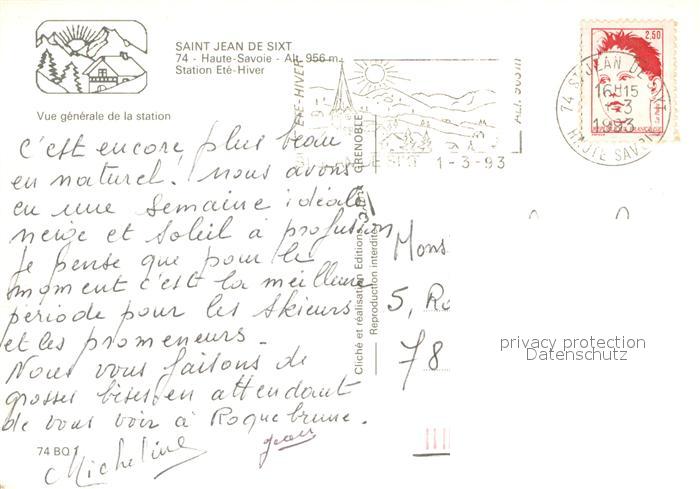 SAINT JEAN DE SIXT
74 - Haute-Savoie - Alt. 956 m.
Station Eté-Hiver
Vue générale de la station
C'est encore plus beau
en naturel. nous avons
eu une semaine idéale
neige et soleil à profusion
Je pense que pour le
moment c'est la meilleure
période pour les skieurs
et les promeneurs.
Nous vous faisons de
grosses bises en attendant
de vous voir à Roquebrune.
Micheline
Jean
74 BQ 1
ETE-HIVER
1-3-93
2,50
74 ST JEAN DE SIXT
16H15
1-3
1993
HAUTE SAVOIE
GRENOBLE
Cliché et réalisation Editions
Reproduction interdite
Mons
5, Ro
78
privacy protection
Datenschutz